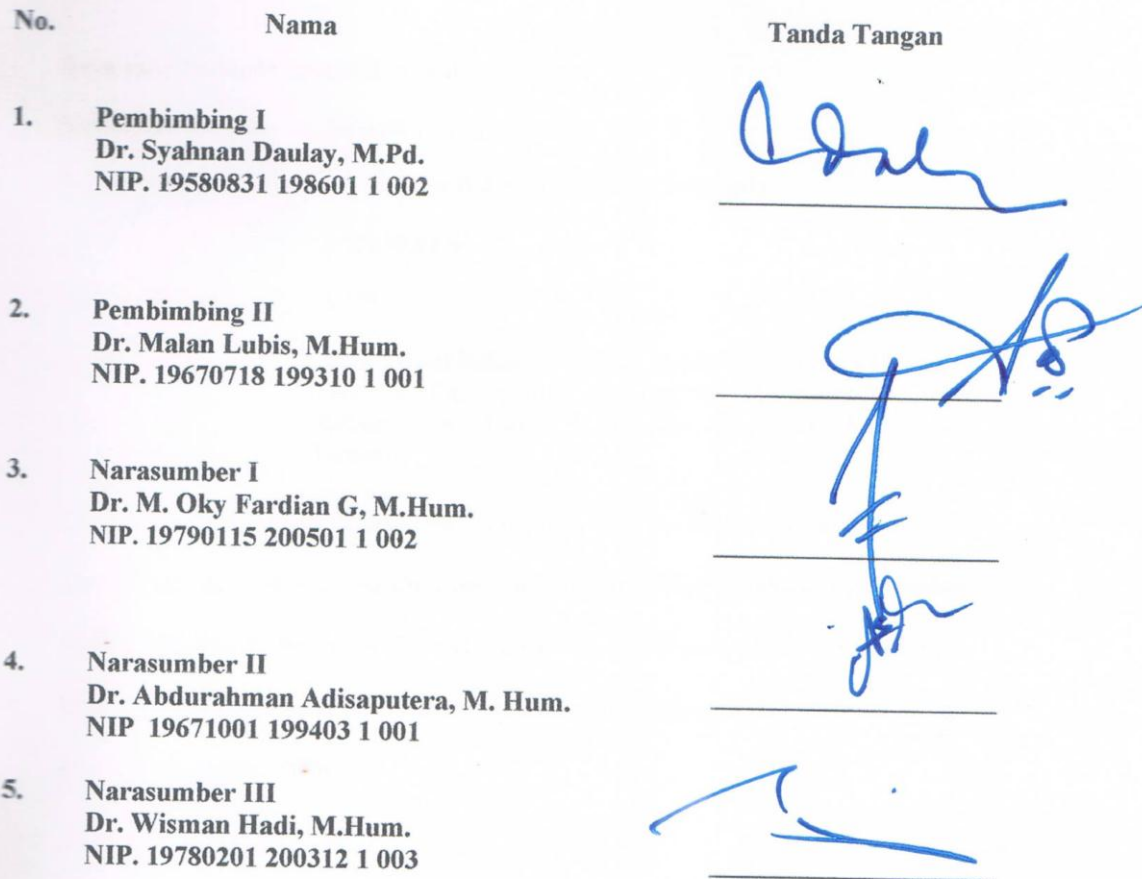 No. Nama Tanda Tangan
1. Pembimbing I
Dr. Syahnan Daulay, M.Pd.
NIP. 19580831 198601 1 002
2. Pembimbing II
Dr. Malan Lubis, M.Hum.
NIP. 19670718 199310 1 001
3. Narasumber I
Dr. M. Oky Fardian G, M.Hum.
NIP. 19790115 200501 1 002
4. Narasumber II
Dr. Abdurahman Adisaputera, M. Hum.
NIP 19671001 199403 1 001
5. Narasumber III
Dr. Wisman Hadi, M.Hum.
NIP. 19780201 200312 1 003